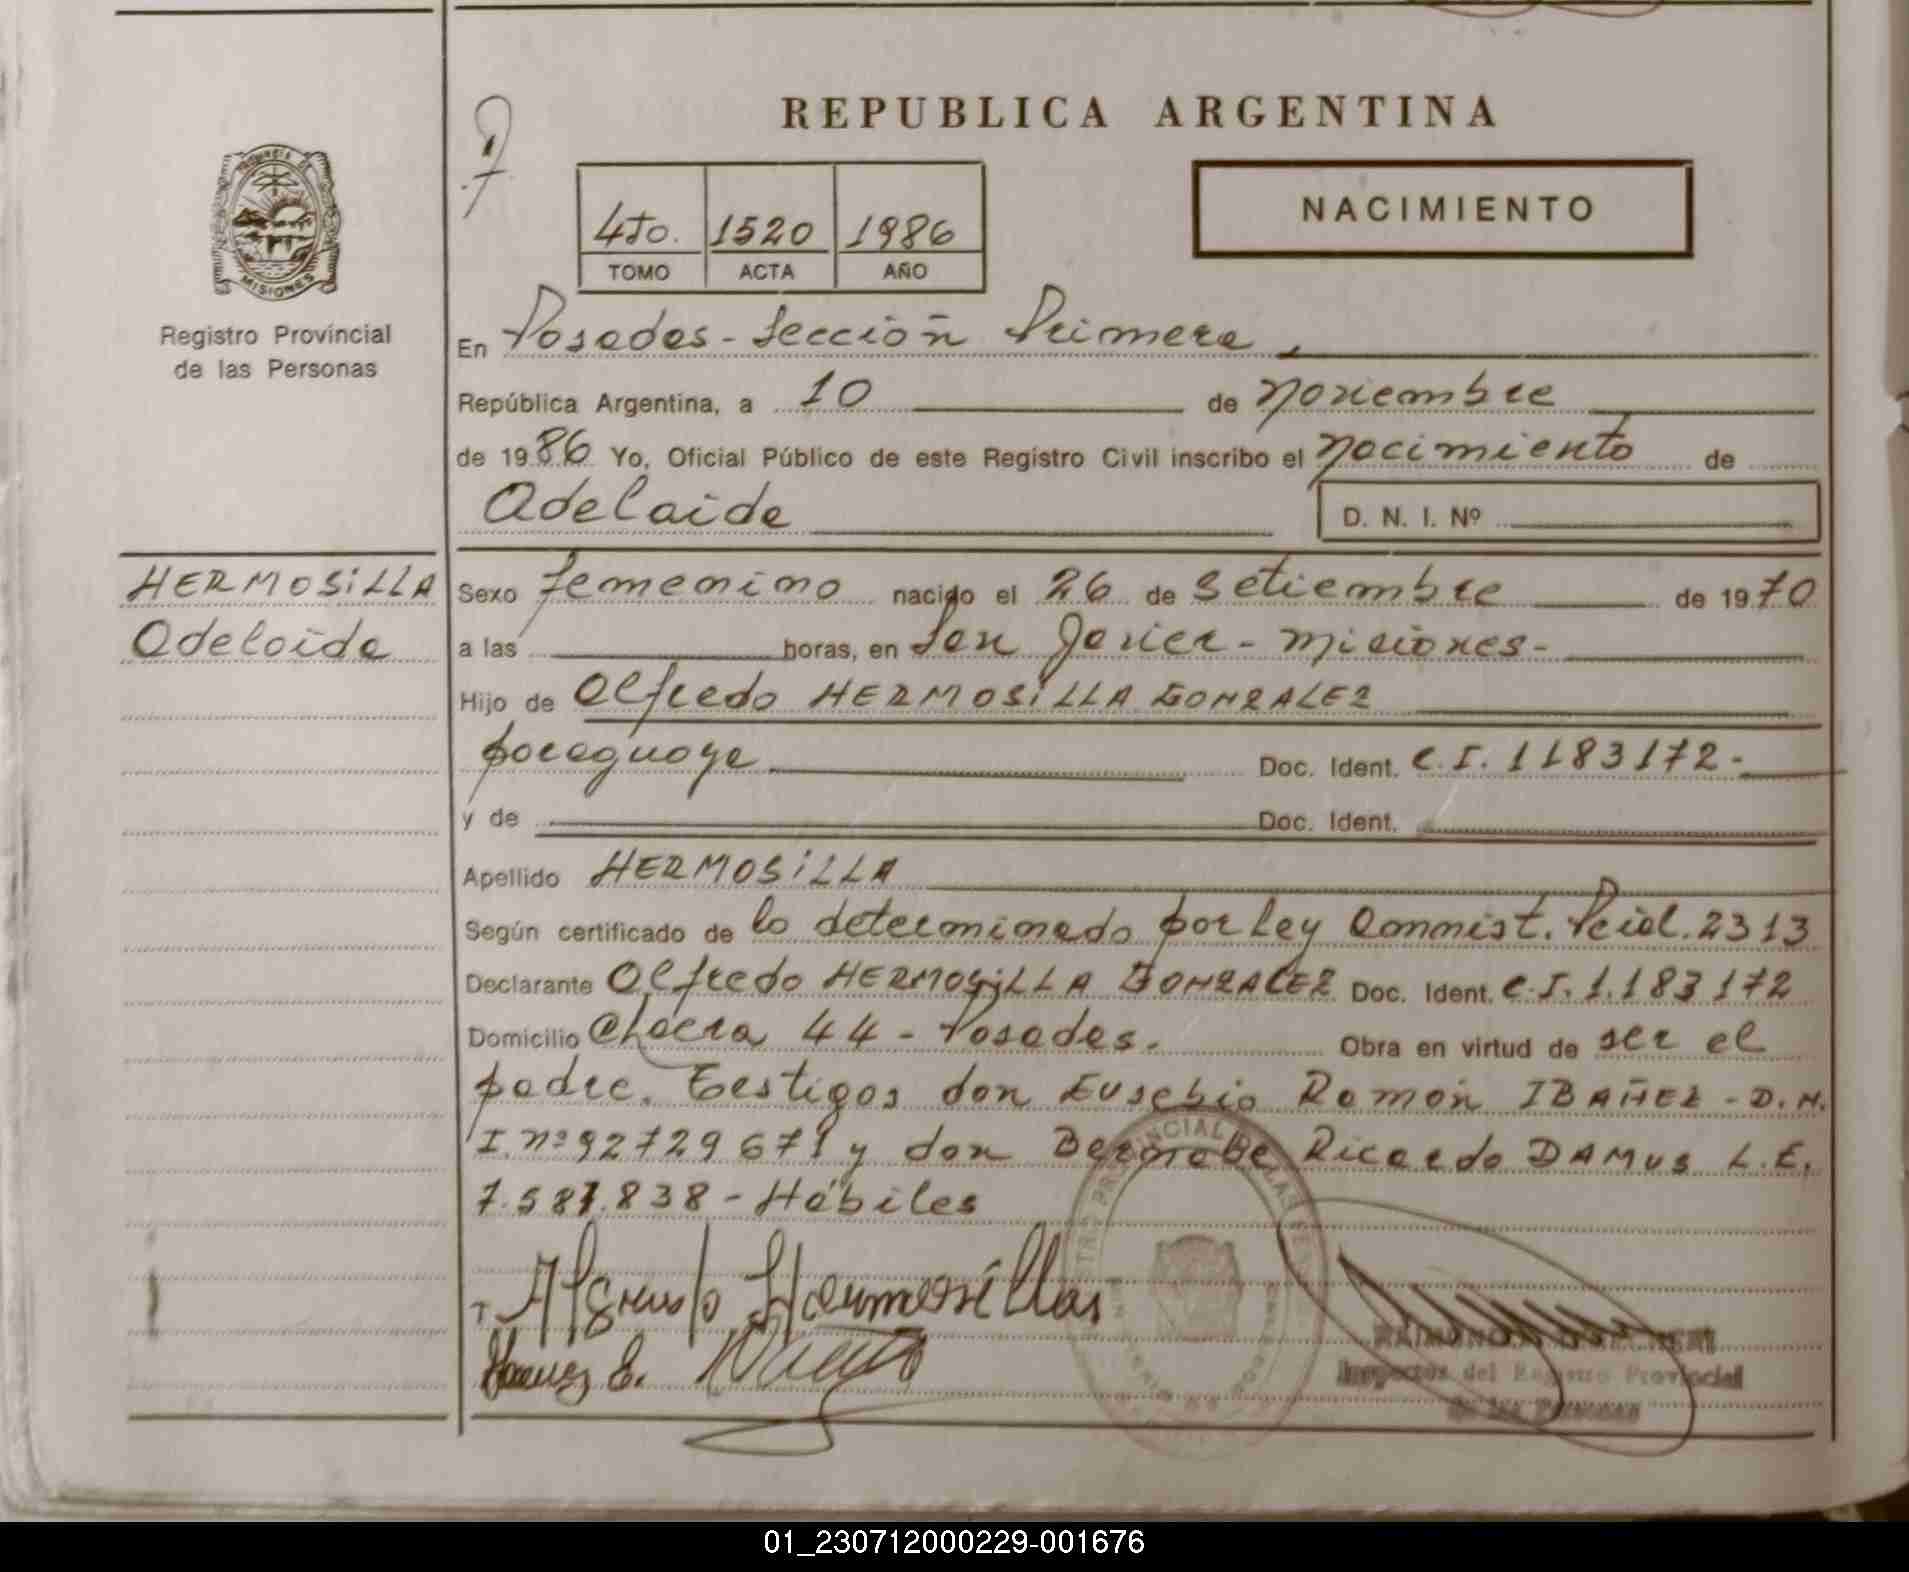 REPUBLICA ARGENTINA
PROVINCIA DE
MISIONES
Registro Provincial
de las Personas
4to. 1520 1986
TOMO ACTA AÑO
NACIMIENTO
En Posadas - Sección Primera
República Argentina, a 10 de noviembre
de 1986 Yo, Oficial Público de este Registro Civil inscribo el nacimiento de
Adelaida
D. N. I. Nº
HERMOSILLA
Adelaida
Sexo femenino nacido el 26 de setiembre de 1970
a las horas, en San Javier - Misiones -
Hijo de Alfredo HERMOSILLA GONZALEZ
paraguaya Doc. Ident. C.I. 1183172 -
y de Doc. Ident.
Apellido HERMOSILLA
Según certificado de lo determinado por Ley Amnist. Pcial. 2313
Declarante Alfredo HERMOSILLA GONZALEZ Doc. Ident. C.I. 1.183172
Domicilio Chacra 44 - Posadas. Obra en virtud de ser el
padre. Testigos don Eusebio Ramón IBAÑEZ - D.N.
I. nº 92729671 y don Ricardo DAMUS L.E.
7.587.838 - Hábiles
Inspector del Registro Provincial
de las Personas
01_230712000229-001676